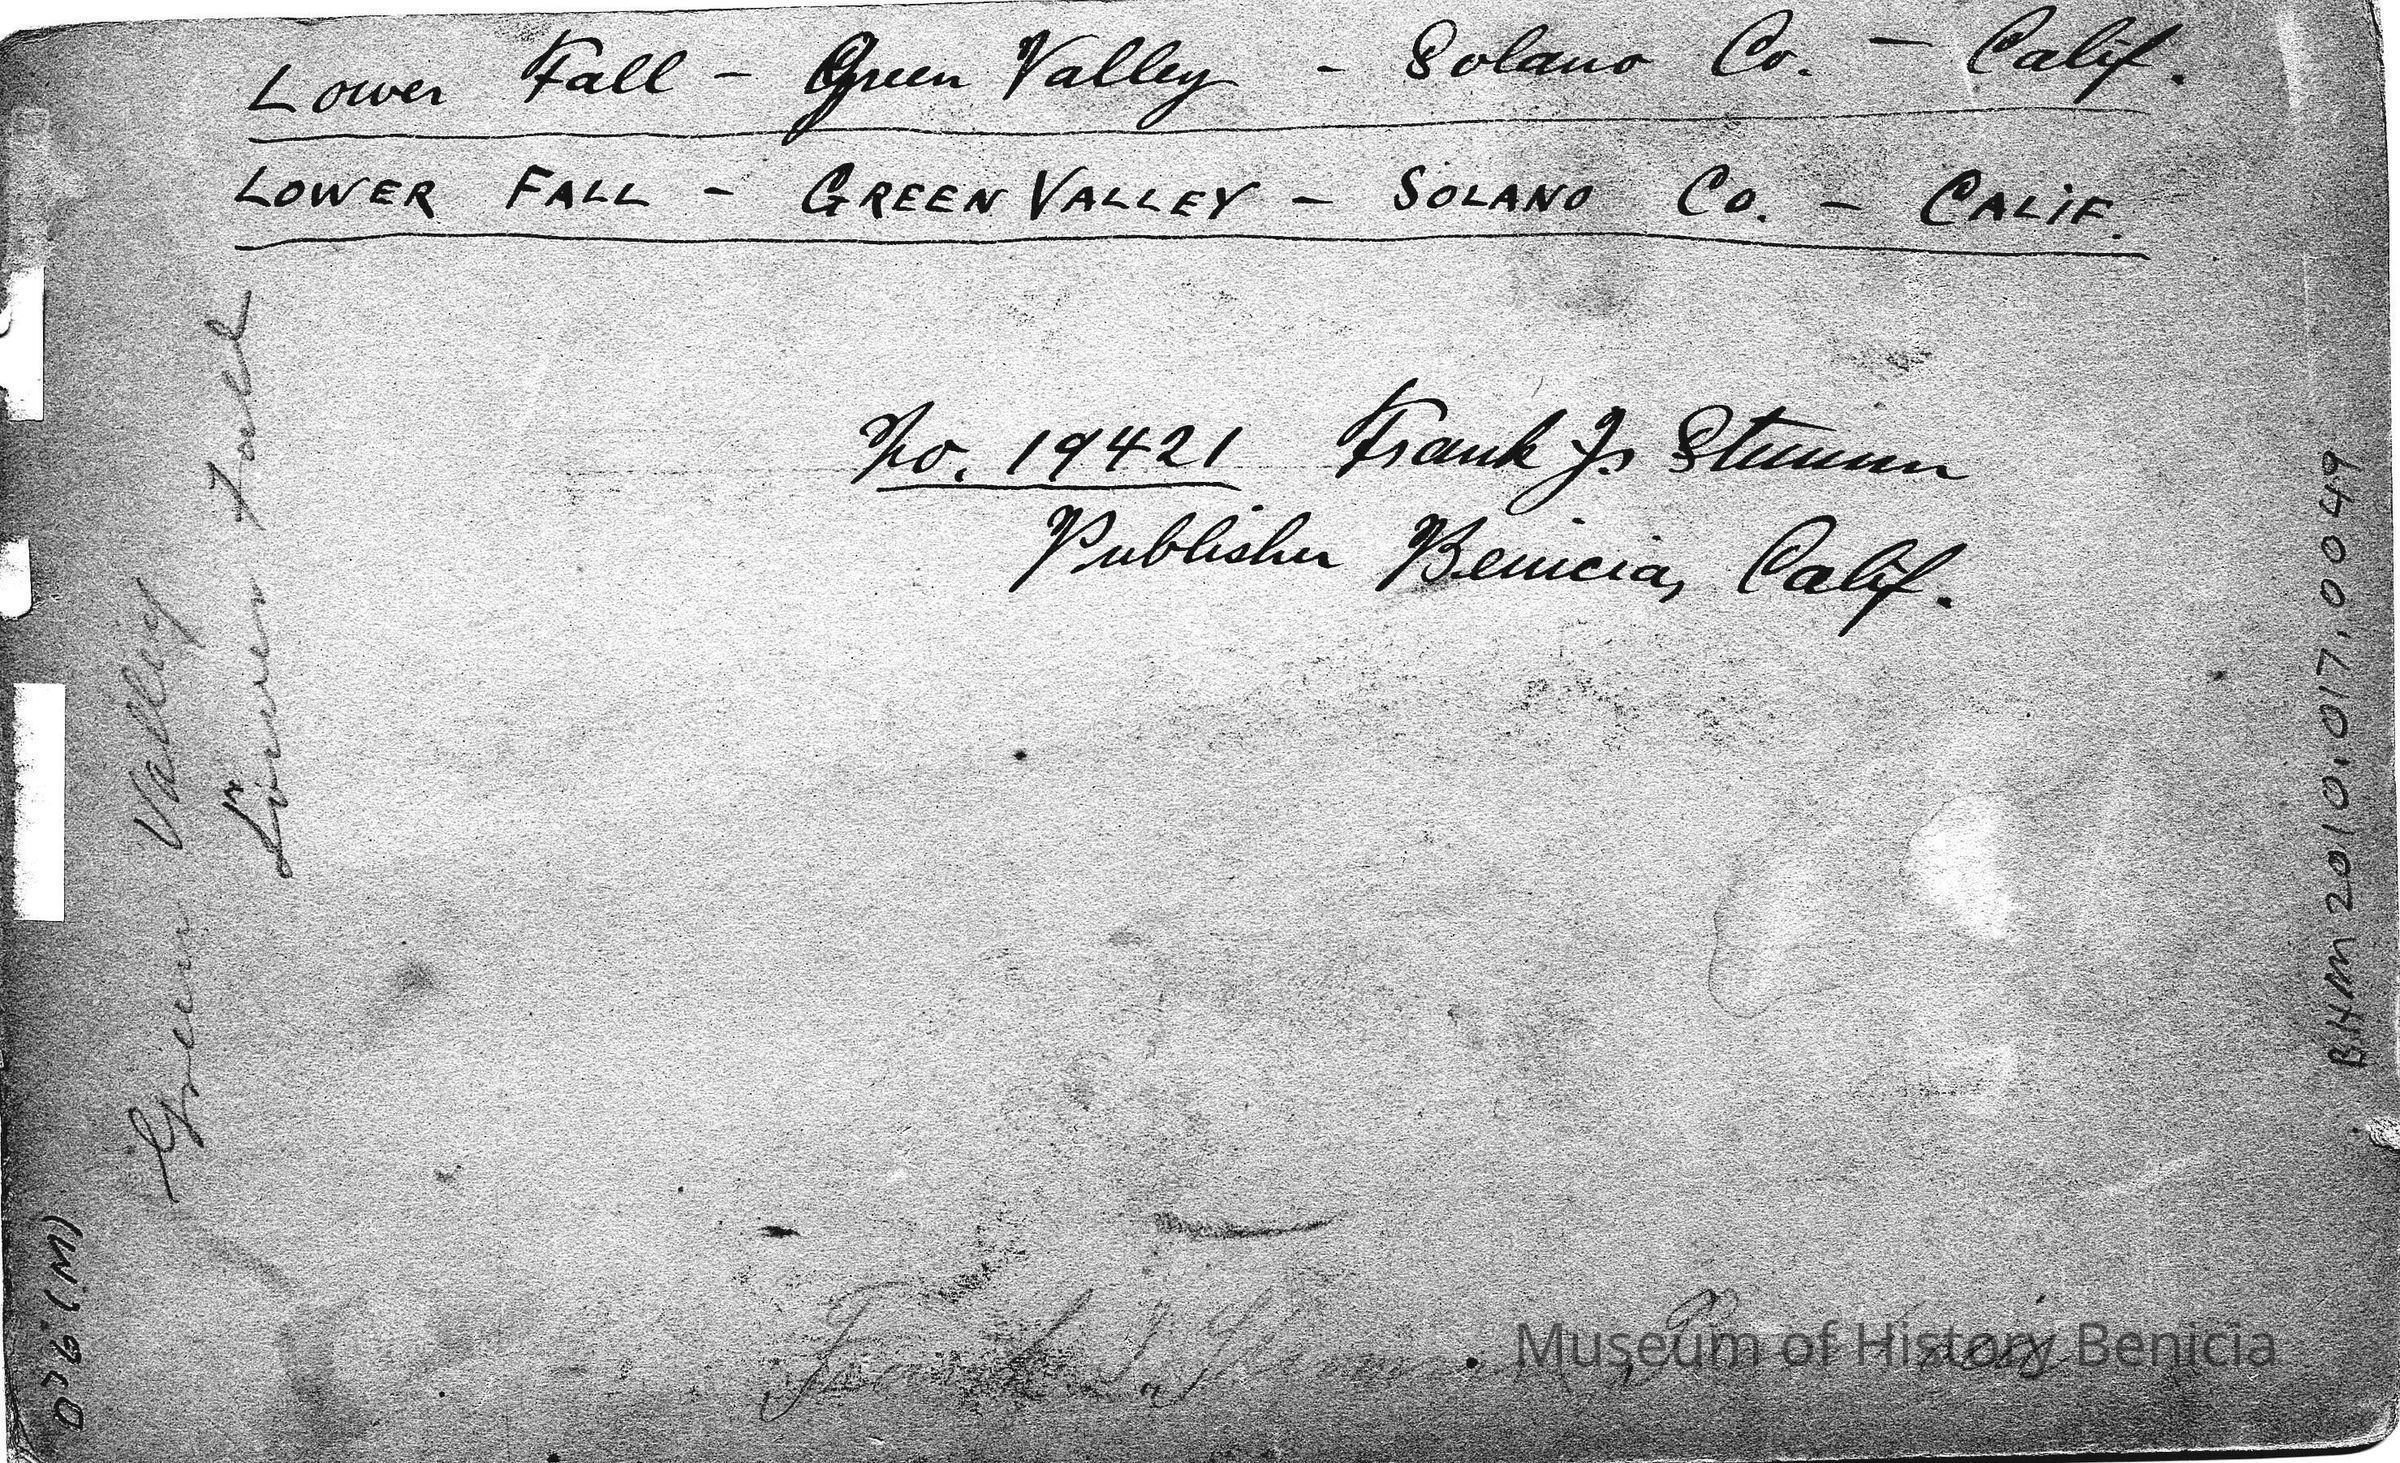 Lower Fall - Green Valley - Solano Co. - Calif.
LOWER FALL - GREEN VALLEY - SOLANO CO. - CALIF.
No. 19421 Frank J. Stumm
Publisher Benicia, Calif.
Green Valley
Lower Fall
BHM 2010.017.0049
Frank J. Stumm
Museum of History Benicia